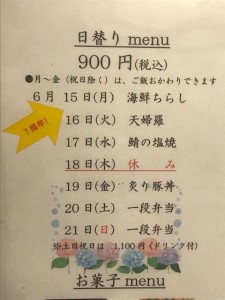 日替り menu
900 円(税込)
●月～金（祝日除く）は、ご飯おかわりできます
6 月 15 日(月) 海鮮ちらし
7周年!
16 日(火) 天婦羅
17 日(水) 鯖の塩焼
18 日(木) 休 み
19 日(金) 炙り豚丼
20 日(土) 一段弁当
21 日(日) 一段弁当
※土日祝日は 1,100 円 (ドリンク付)
お菓子 menu